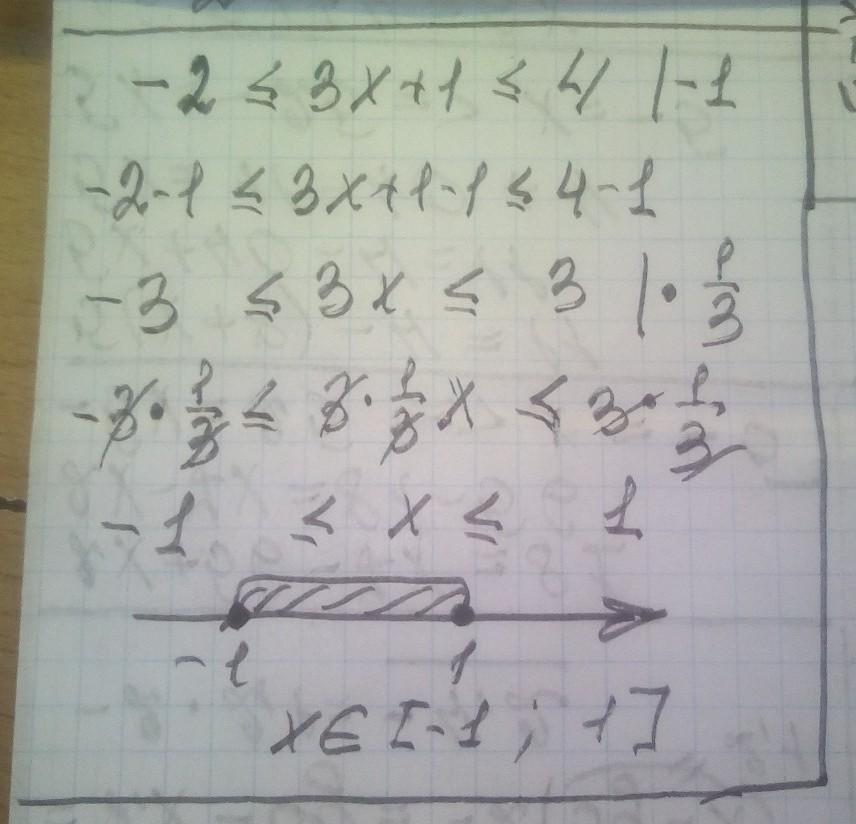 -2 ≤ 3x+1 ≤ 4 |-1
-2-1 ≤ 3x+1-1 ≤ 4-1
-3 ≤ 3x ≤ 3 |• 1/3
-3• 1/3 ≤ 3• 1/3 x ≤ 3• 1/3
-1 ≤ x ≤ 1
-1 1
x∈[-1 ; 1]